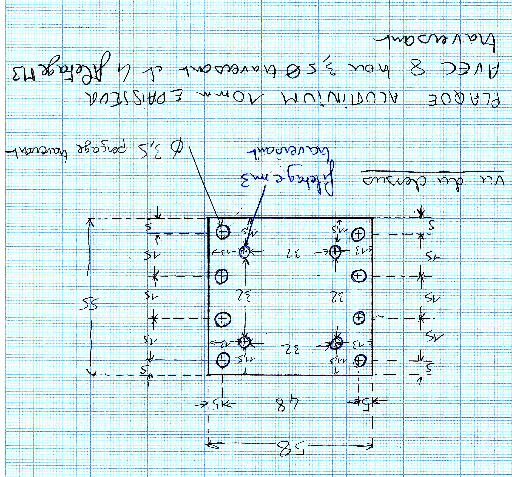 58
5 48 5
5 5
15 15
32
13 13
55
15 32 32 15
15 32 15
13 13
5 5
vu du dessus
filetage m3
traversant
Ø 3,5 perçage traversant
PLAQUE ALUMINIUM 10mm EPAISSEUR
AVEC 8 trou 3,5 Ø traversant et 4 filetage M3
traversant